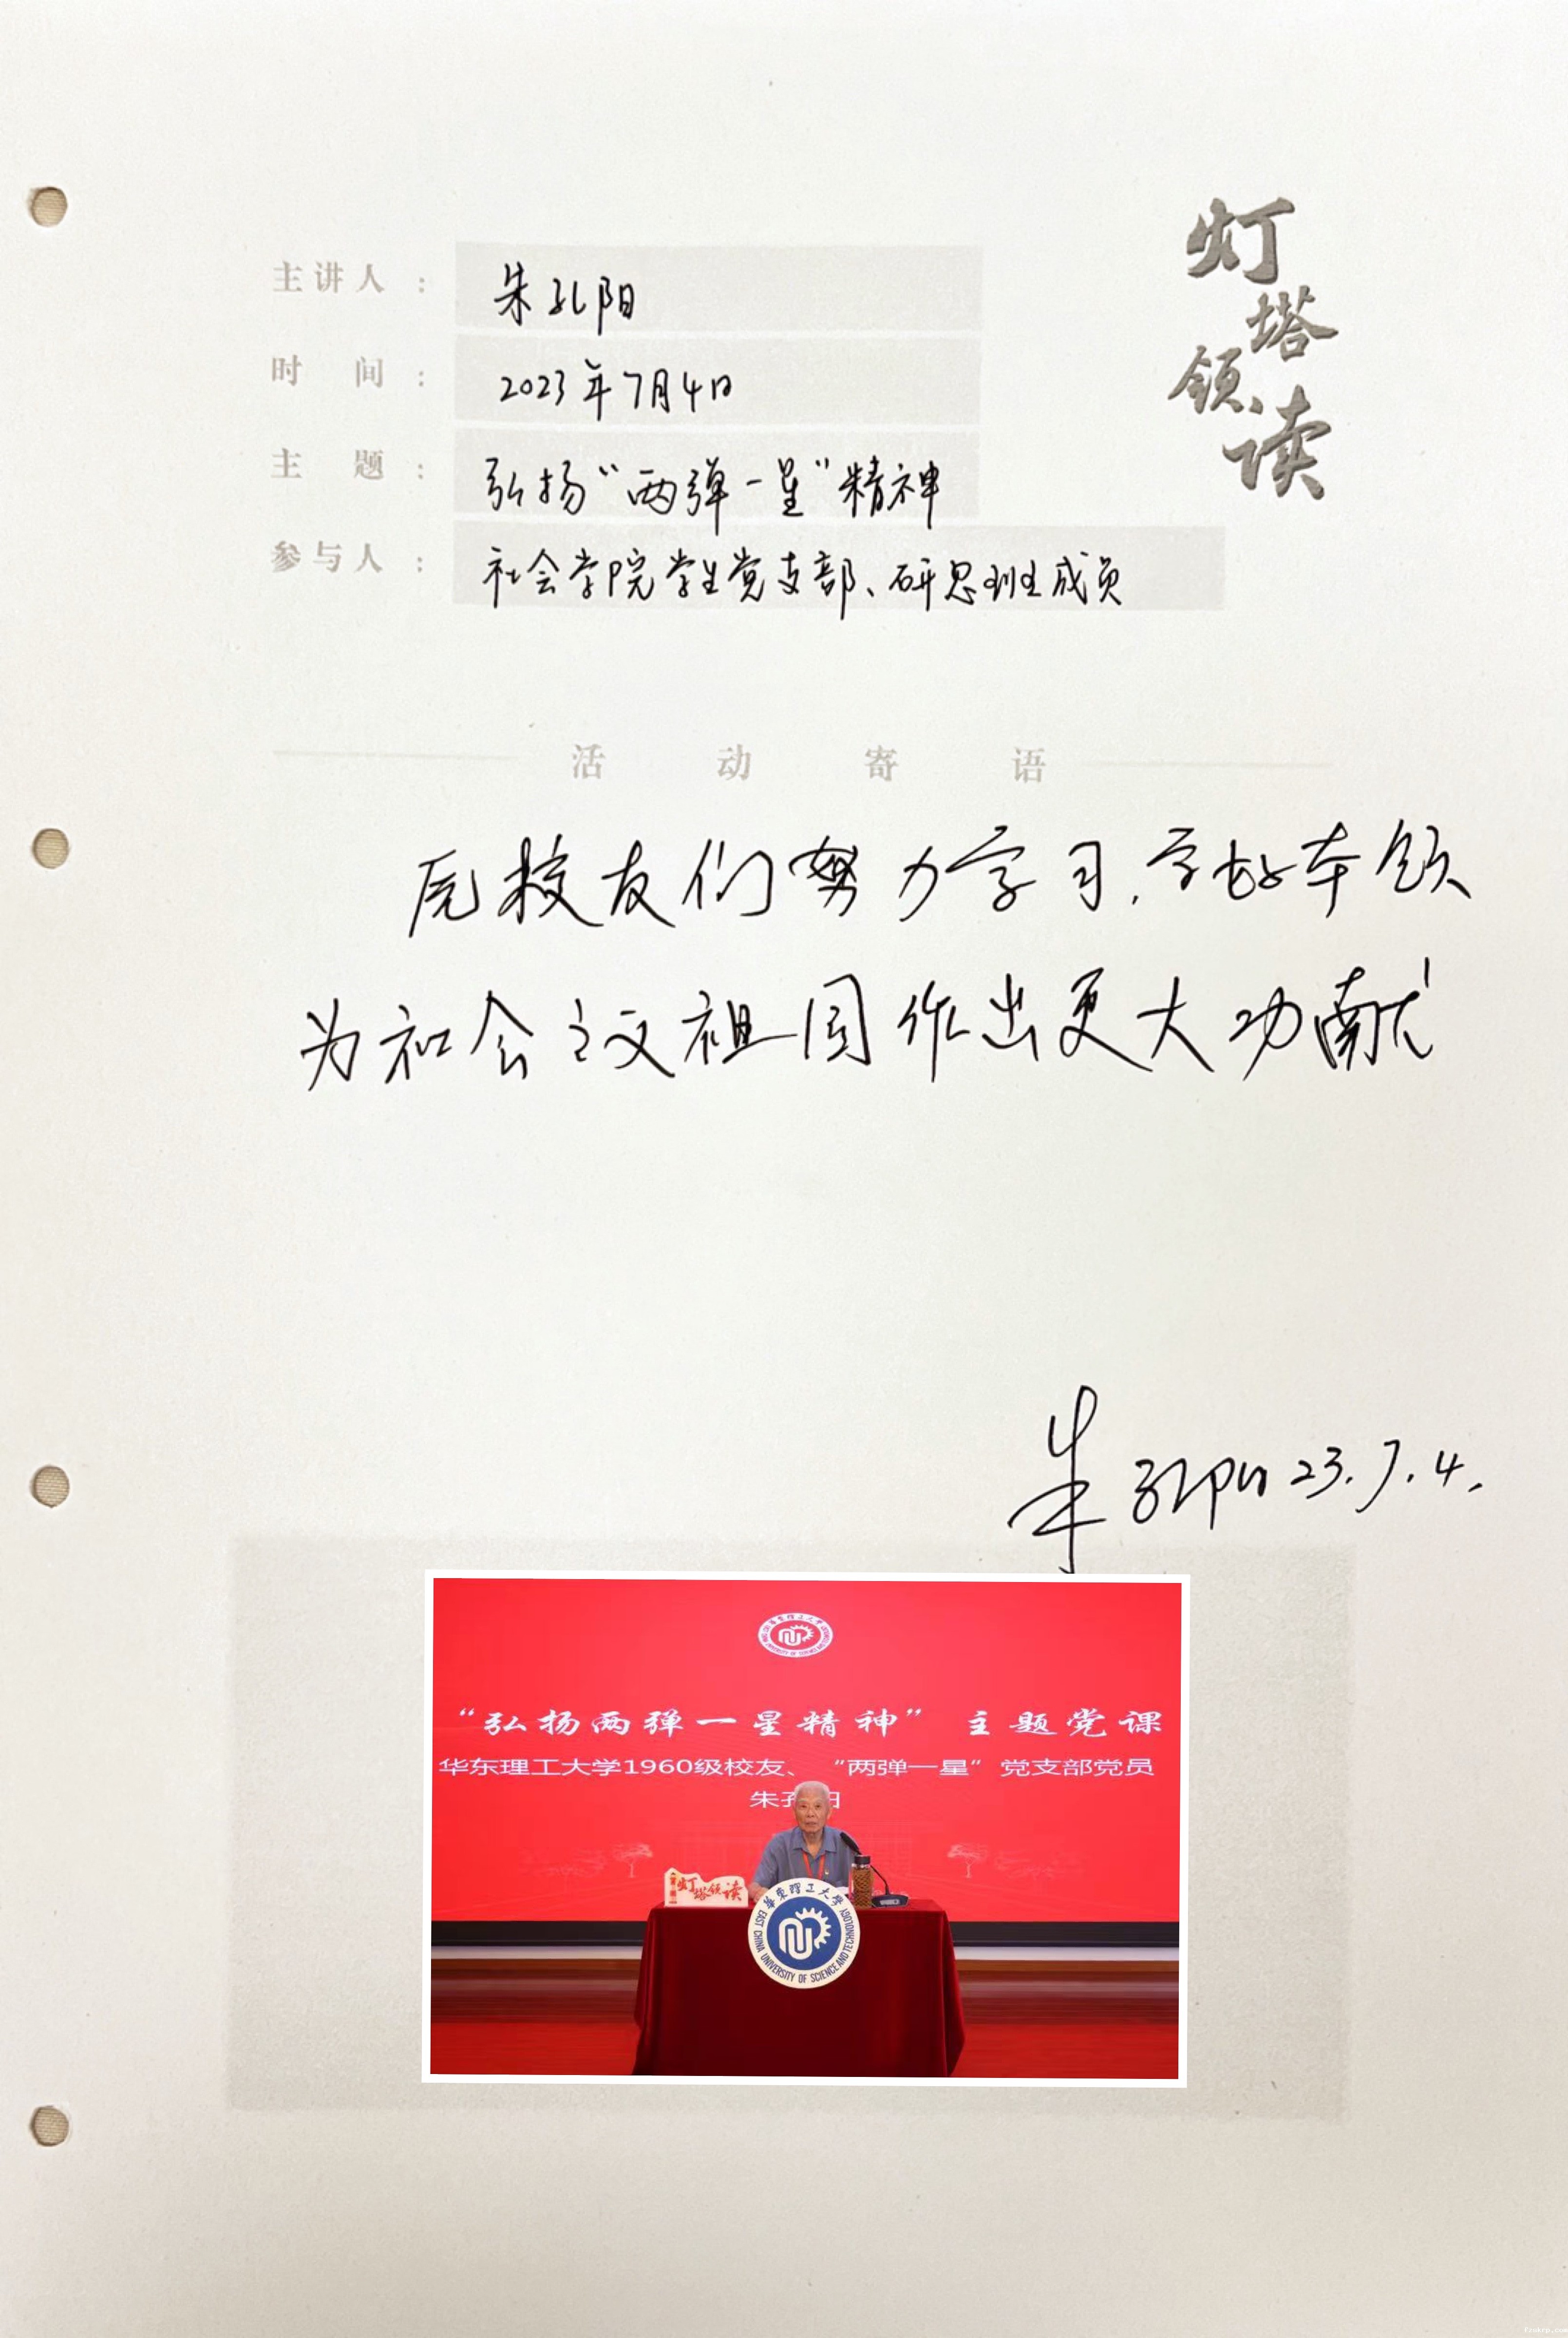 灯塔领读
主讲人：朱孔阳
时间：2023年7月4日
主题：弘扬“两弹一星”精神
参与人：社会学院学生党支部、研思班成员
活动寄语
校友们努力学习，学好本领
为社会主义祖国作出更大功献
朱孔阳 23.7.4.
華東理工大學
“弘扬两弹一星精神”主题党课
华东理工大学1960级校友、“两弹一星”党支部党员
朱孔阳
灯塔领读
華東理工大學
EAST CHINA UNIVERSITY OF SCIENCE AND TECHNOLOGY